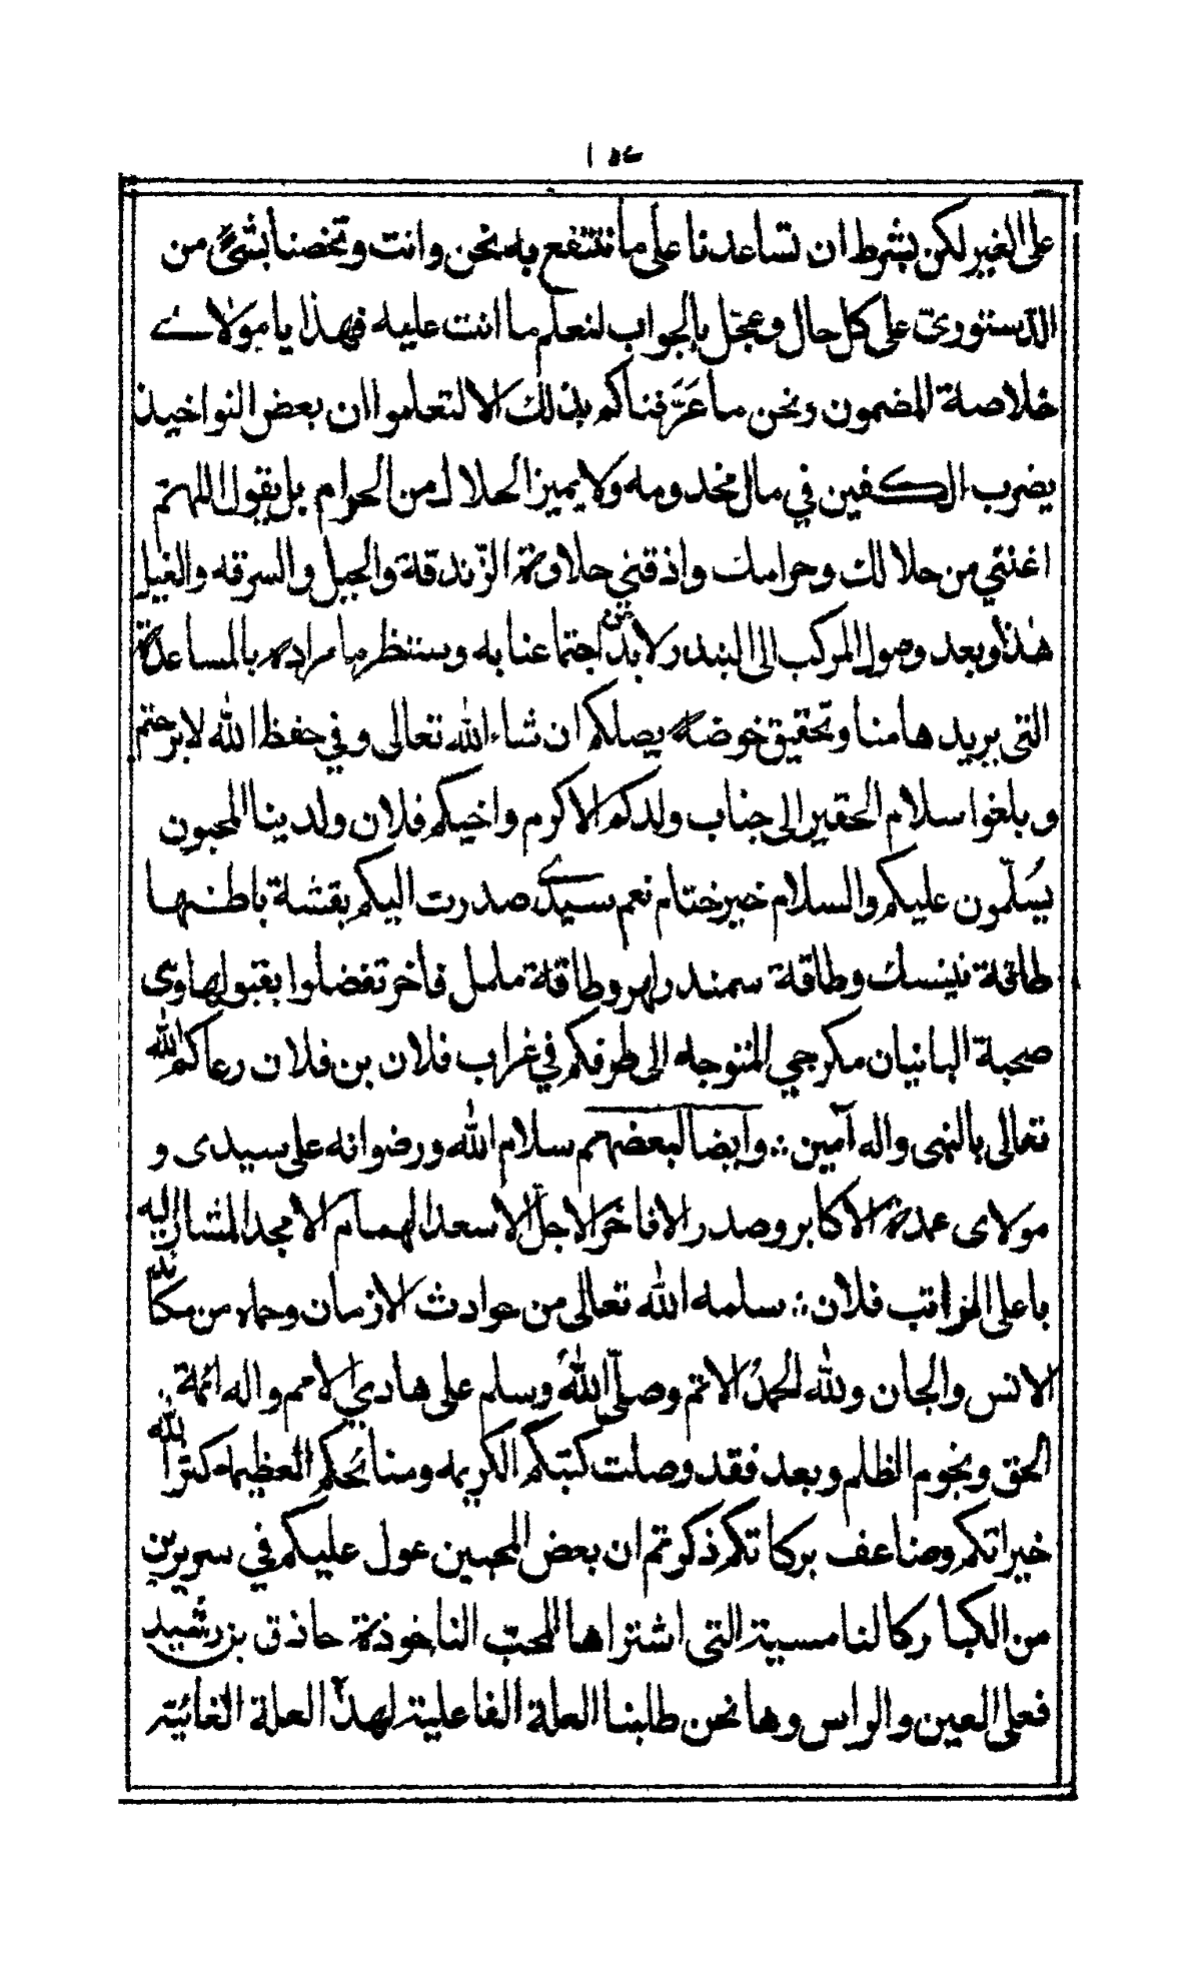 على الغير لكن بشرط ان تساعدنا على ما ننتفع به نحن وانت وتخصنا بشئ من
الدستوري على كل حال وعجّل بالجواب لنعلم ما انت عليه فهذا يا مولاى
خلاصة المضمون ونحن ما عرّفناكم بذلك الا لتعلموا ان بعض النواخيذ
يضرب الكفين في مال مخدومه ولا يميز الحلال من الحرام بل يقول اللهم
اغنني من حلالك وحرامك واذقني حلاوة الزّندقة والحيل والسرقه والغيل
هذا وبعد وصول المركب الى البندر لابدّ من اجتماعنا به وسننظر ما مراده بالمساعدة
التى يريدها منا وتحقيق خوضه يصلكم ان شاء الله تعالى وفي حفظ الله لا برحتم
وبلغوا سلام الحقير الى جناب ولدكم الاكرم واخيكم فلان ولدينا المحبون
يُسلّمون عليكم والسلام خير ختام نعم سيدى صدرت اليكم بقشة باطنها
طاقة نينسك وطاقة سمندرلهر وطاقة ململ فاخر تفضلوا بقبولها وى
صحبة البانيان مكرجي المتوجه الى طرفكم في غراب فلان بن فلان رعاكم الله
تعالى بالنبى واله آمين ؞ وايضا لبعضهم سلام الله ورضوانه على سيدى و
مولاى عمدة الاكابر وصدر الافاخر الاجلّ الاسعد الهمام الامجد المشار اليه
باعلى المراتب فلان ؞ سلمه الله تعالى من حوادث الازمان وحماه من مكائد
الانس والجان ولله الحمدُ الاتم وصلّى اللهُ وسلم على هادي الامم واله ائمة
الحق ونجوم الظلم وبعد فقد وصلت كتبكم الكريمه ومنائحكم العظيمه كثر الله
خيراتكم وضاعف بركاتكم ذكرتم ان بعض المحبين عول عليكم في سريرين
من الكبار كالنامسية التى اشتراها المحبّ الناخوذة حاذق بن رشيد
فعلى العين والراس وها نحن طلبنا العلة الفاعلية لهذا العلة الغائية